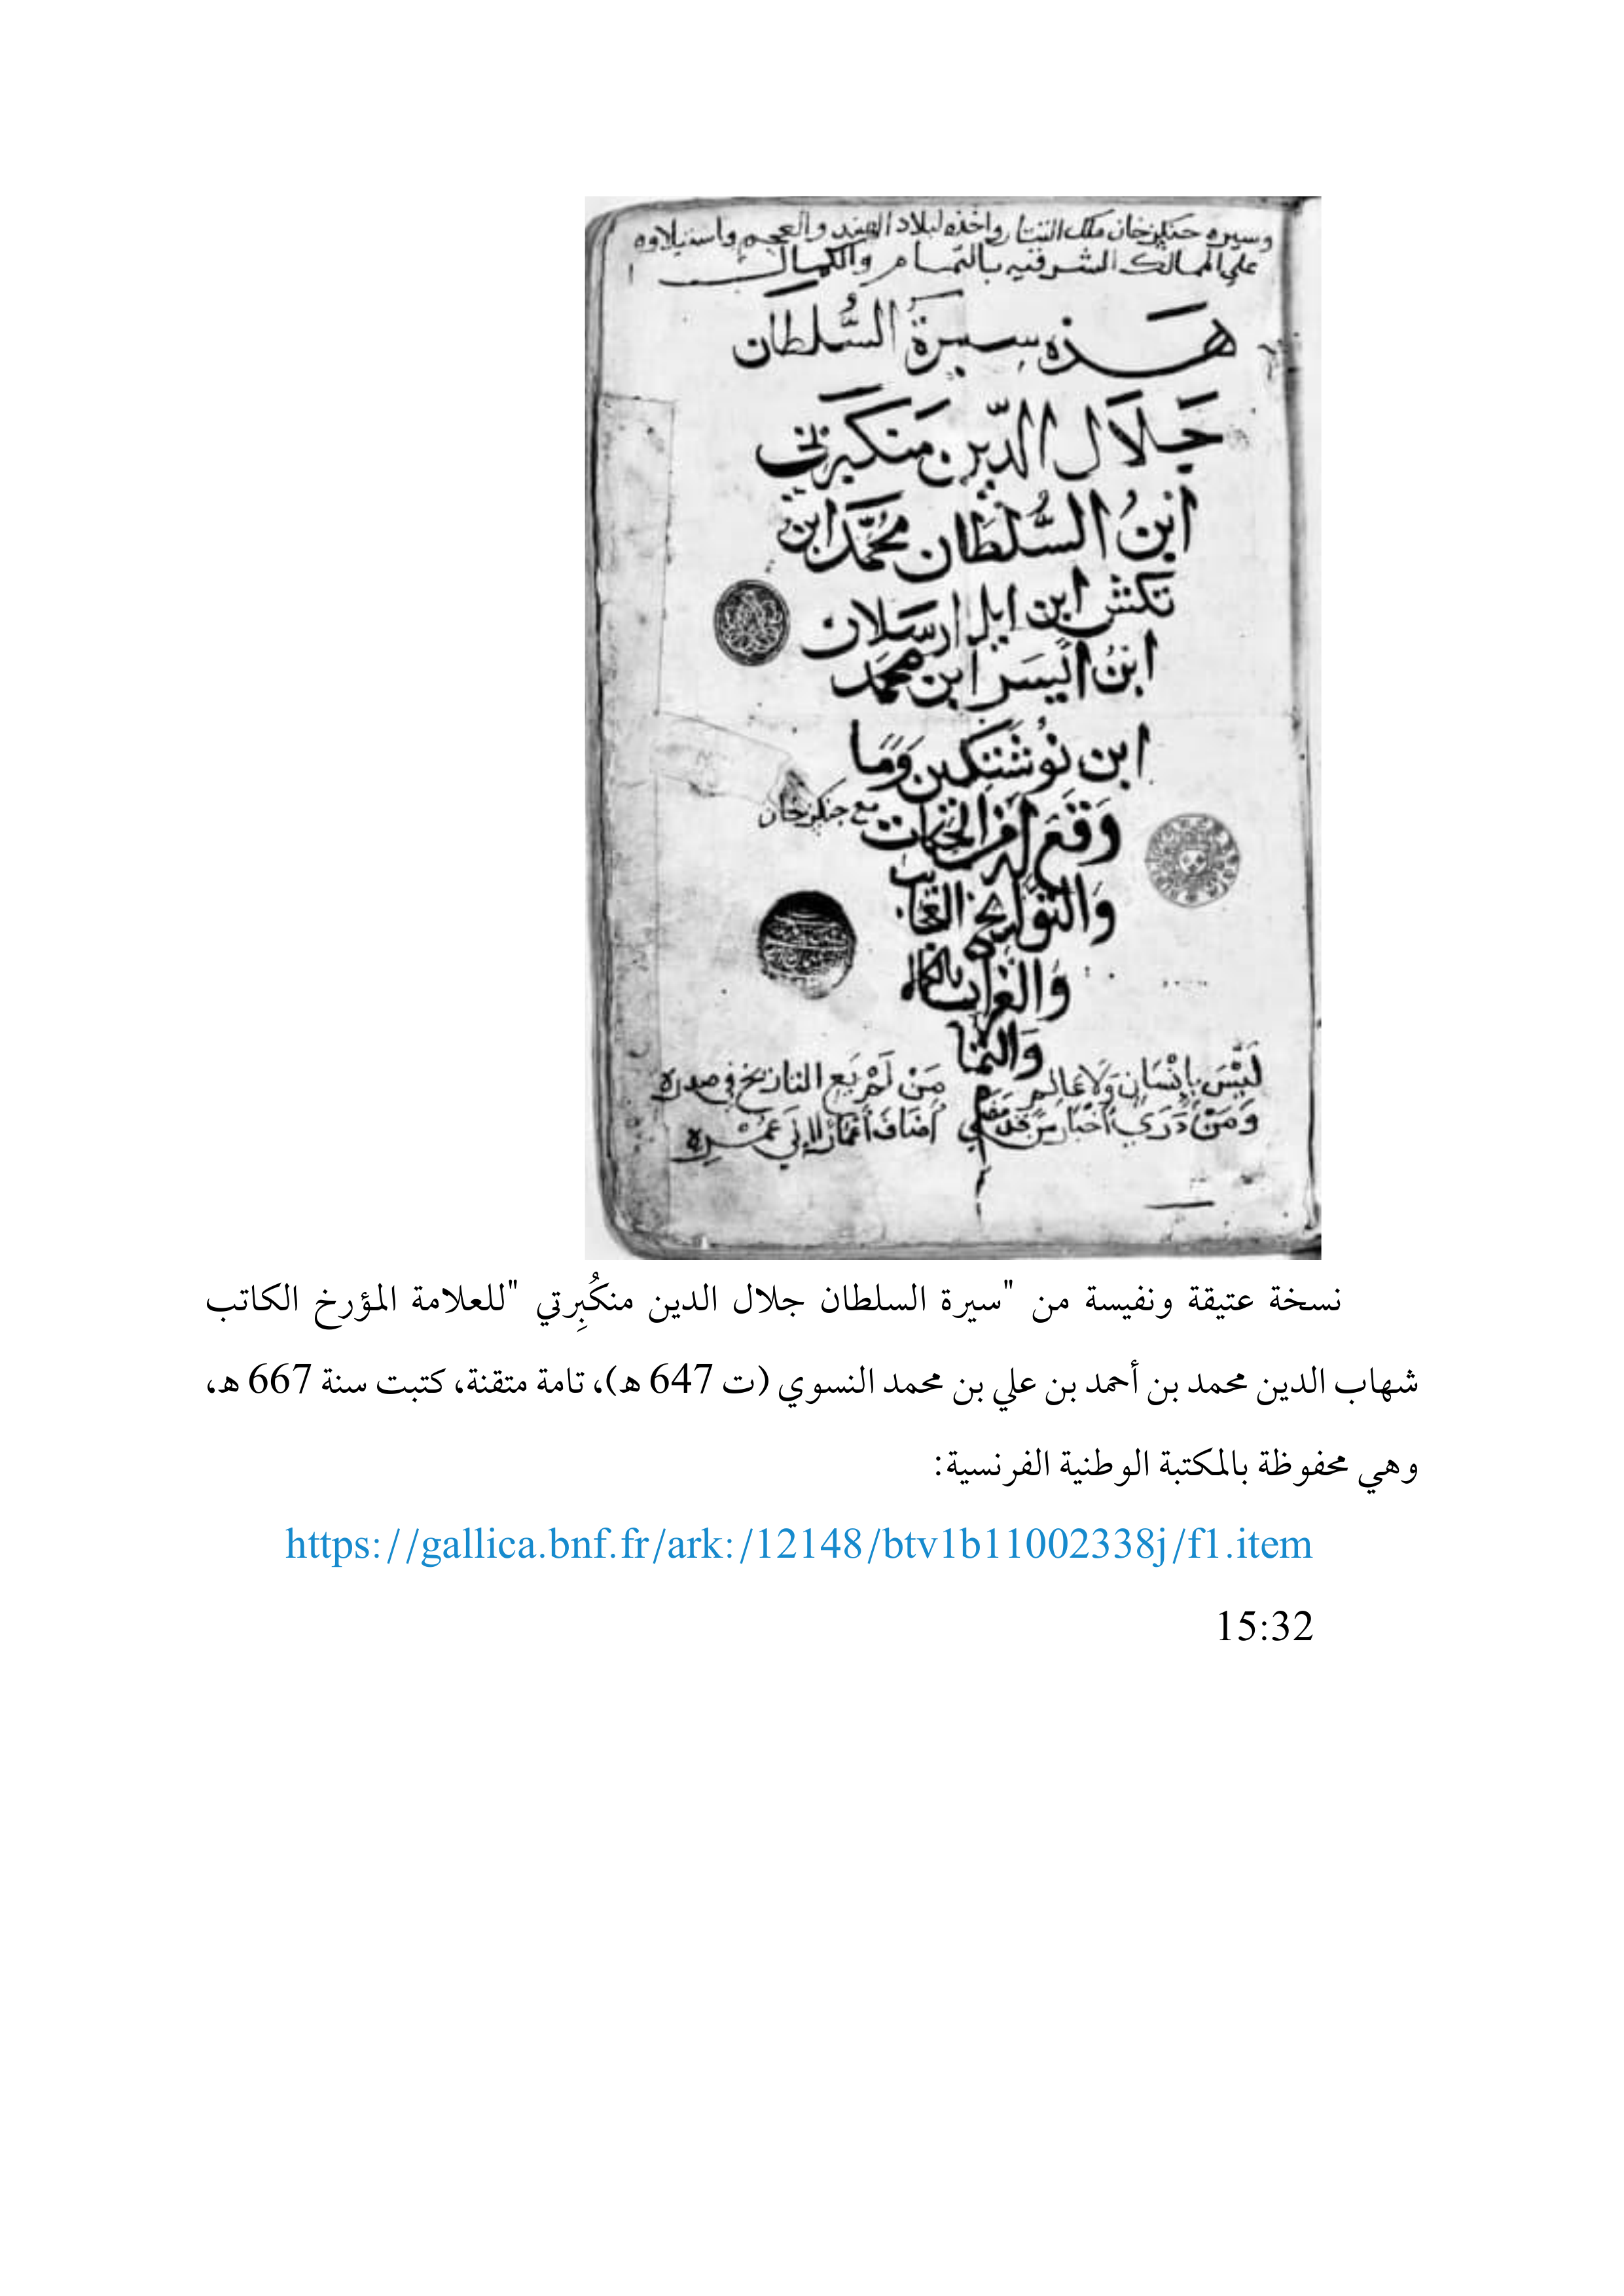 وسيره جنكيزخان ملك التتار واخذه لبلاد الهند والعجم واستيلاوه
على الممالك الشرقيه بالتمام والكمال
هَذِه سِيرَةُ السُّلطان
جَلَال الدّين مَنكبرتي
ابنُ السُّلطَان محُمَّد ابن
تكش ابن ايل ارسلان
ابنُ اتسز ابن محمَد
ابن نوُشتكين وَمَا
وَقَعَ لَه من الحكايات مع جنكيزخان
وَالتواريخ
وَالغرايب بالكمال
وَالتما
لَيْسَ بِإنْسَانٍ وَلَا عَالِمٍ مَنْ لَمْ يَعِ التاريخ في صدره
وَمَنْ دَرَي أخبَار مَن قد مضي أضَافَ أعمَارًا إلي عمُره
نسخة عتيقة ونفيسة من "سيرة السلطان جلال الدين منكُبِرتي "للعلامة المؤرخ الكاتب
شهاب الدين محمد بن أحمد بن علي بن محمد النسوي (ت 647 هـ)، تامة متقنة، كتبت سنة 667 هـ،
وهي محفوظة بالمكتبة الوطنية الفرنسية:
https://gallica.bnf.fr/ark:/12148/btv1b11002338j/f1.item
15:32